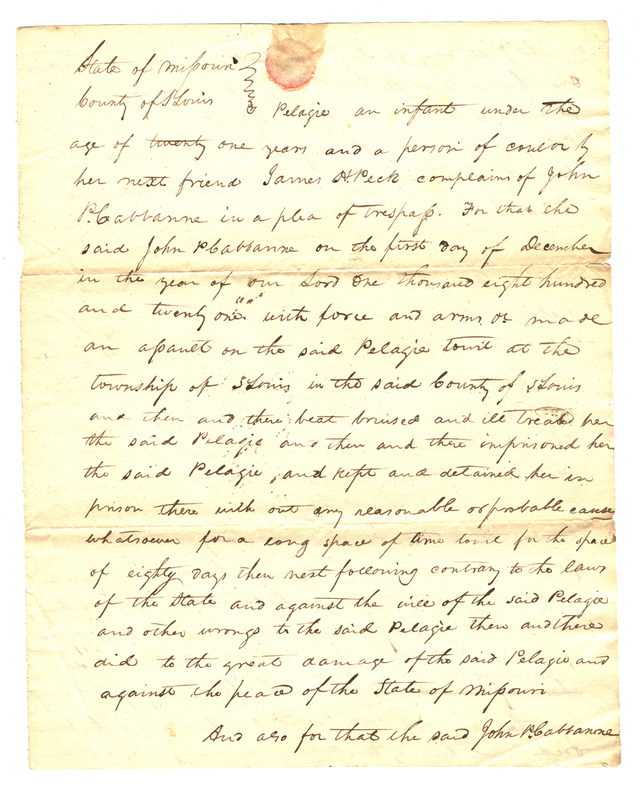 State of Missouri
County of S Louis
Pelagie an infant under the
age of twenty one years and a person of coulor by
her next friend James H. Peck complains of John
P. Cabbanne in a plea of trespass. For that the
said John P Cabbanne on the first day of December
in the year of our Lord One thousand eight hundred
and twenty one with force and arms &c made
an assault on the said Pelagie towit at the
township of S Louis in the said County of S Louis
and then and there beat bruised and ill treated her
the said Pelagie and then and there imprisoned her
the said Pelagie, and kept and detained her in
prison there with out any reasonable or probable cause
whatsoever for a long space of time towit for the space
of eighty days then next following contrary to the laws
of the State and against the will of the said Pelagie
and other wrongs to the said Pelagie then and there
did to the great damage of the said Pelagie and
against the peace of the State of Missouri
And also for that the said John P. Cabbanne